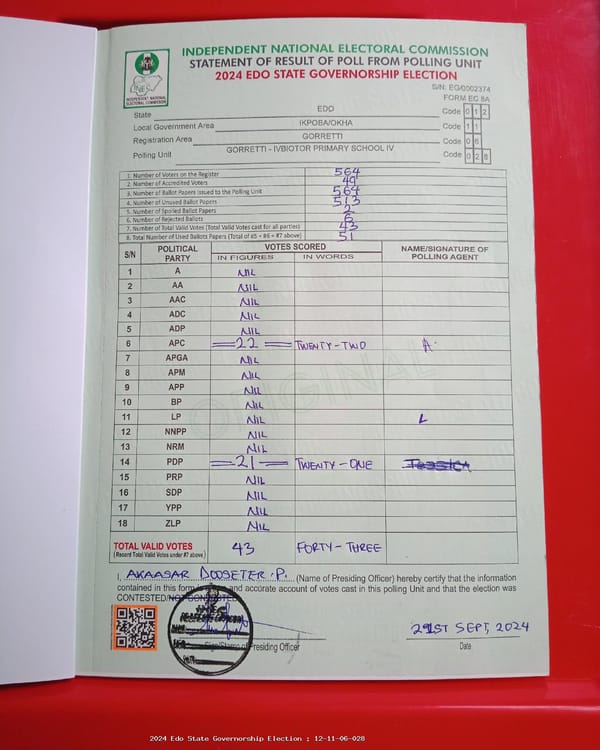 INDEPENDENT NATIONAL ELECTORAL COMMISSION
STATEMENT OF RESULT OF POLL FROM POLLING UNIT
2024 EDO STATE GOVERNORSHIP ELECTION
INEC
INDEPENDENT NATIONAL ELECTORAL COMMISSION
S/N: EG/0002374
FORM EC 8A
State EDO Code 0 1 2
Local Government Area IKPOBA/OKHA Code 1 1
Registration Area GORRETTI Code 0 6
Polling Unit GORRETTI - IVBIOTOR PRIMARY SCHOOL IV Code 0 2 8
1. Number of Voters on the Register 564
2. Number of Accredited Voters 49
3. Number of Ballot Papers Issued to the Polling Unit 564
4. Number of Unused Ballot Papers 513
5. Number of Spoiled Ballot Papers 2
6. Number of Rejected Ballots
7. Number of Total Valid Votes (Total Valid Votes cast for all parties) 43
8. Total Number of Used Ballots Papers (Total of #5 + #6 + #7 above) 51
S/N POLITICAL PARTY VOTES SCORED NAME/SIGNATURE OF POLLING AGENT
IN FIGURES IN WORDS
1 A NIL
2 AA NIL
3 AAC NIL
4 ADC NIL
5 ADP NIL
6 APC =22= TWENTY-TWO A.
7 APGA NIL
8 APM NIL
9 APP NIL
10 BP NIL
11 LP NIL L
12 NNPP NIL
13 NRM NIL
14 PDP =21= TWENTY-ONE
15 PRP NIL
16 SDP NIL
17 YPP NIL
18 ZLP NIL
ORIGINAL
TOTAL VALID VOTES 43 FORTY-THREE
(Record Total Valid Votes under #7 above)
I, AKAASAR DOOSETER .P. (Name of Presiding Officer) hereby certify that the information
contained in this form is and accurate account of votes cast in this polling Unit and that the election was
CONTESTED/NOT CONTESTED
21ST SEPT, 2024
Sign/Stamp of Presiding Officer Date
2024 Edo State Governorship Election : 12-11-06-028